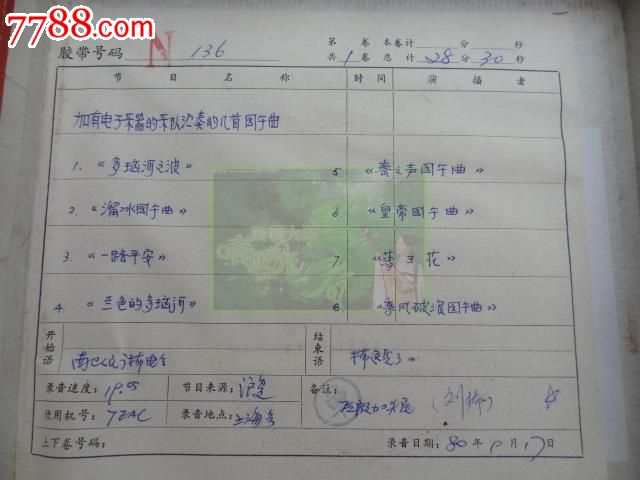 7788.com
胶带号码 N 136 第 卷 本卷计 分 秒
共 1 卷 总计 28 分 30 秒
节目名称 时间 演播者
加有电子乐器的乐队演奏的几首园午曲
1. 《多瑙河之波》 5 《春之声园午曲》
2. 《溜冰园午曲》 6 《皇帝园午曲》
3. 《一路平安》 7
4 《兰色的多瑙河》 8 《乘风破浪园午曲》
开始语 结束语
录音速度: 19.05 节目来源: 沪复 备注:
使用机号: TEAC 录音地点: 上海台
上下卷号码: 录音日期: 80 年 月 17 日